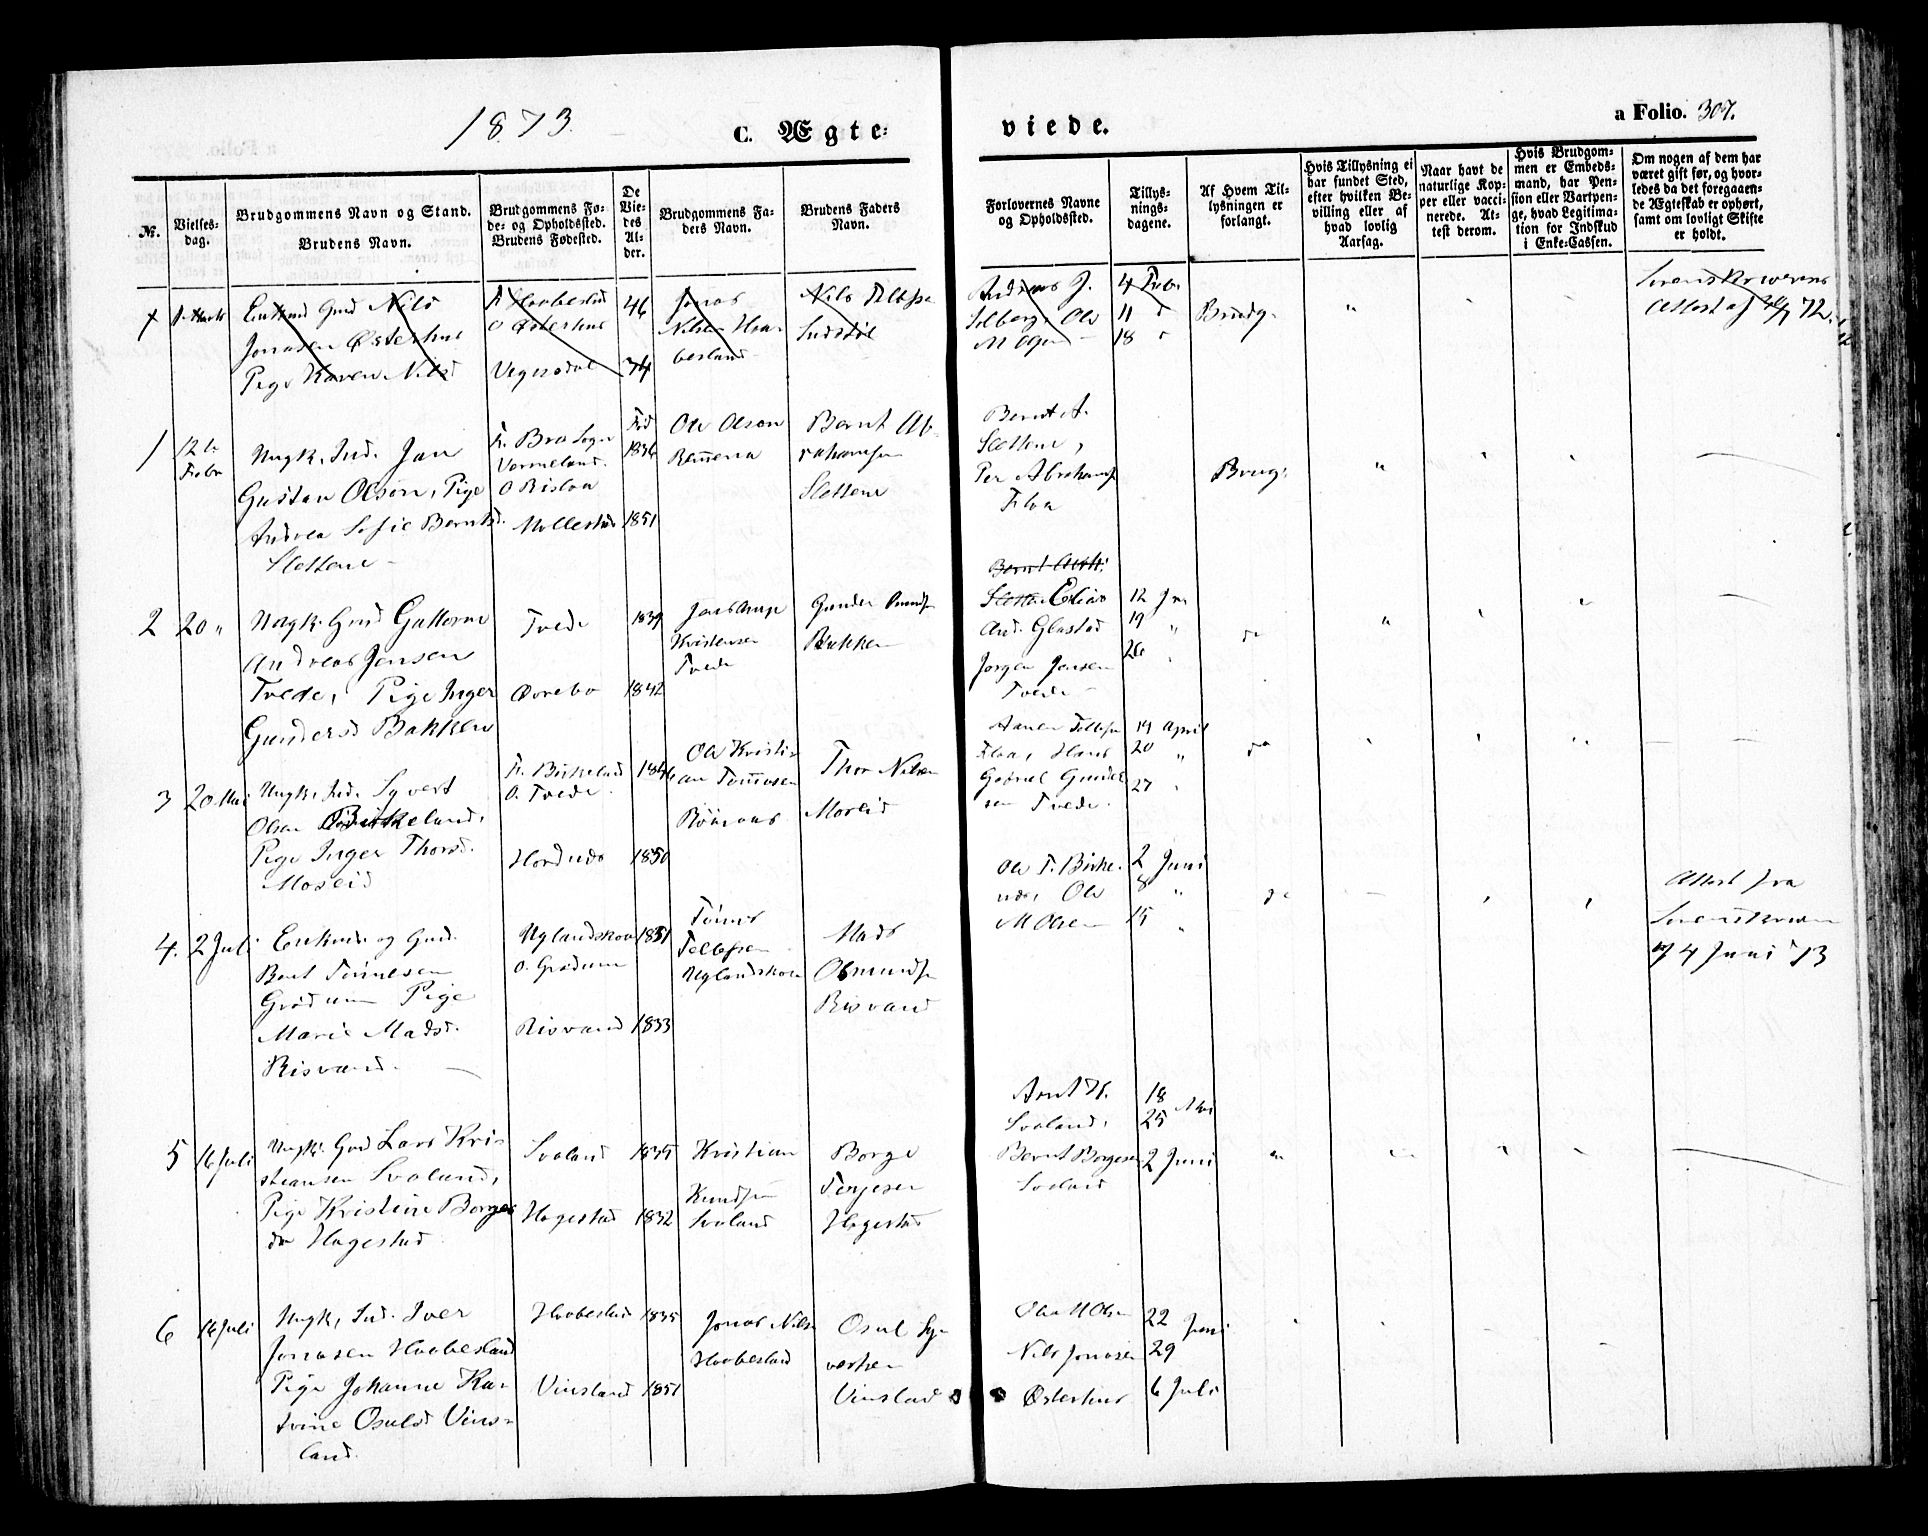 1873
C. Ægte-
viede.
a Folio. 307.
No.
Vielses-
dag.
Brudgommens Navn og Stand.
Brudens Navn.
Brudgommens Fø-
de- og Opholdssted.
Brudens Fødested.
De
Vie-
des
Al-
der.
Brudgommens Fa-
ders Navn.
Brudens Faders
Navn.
Forlovernes Navne
og Opholdssted.
Tillys-
nings-
dagene.
Af Hvem Til-
lysningen er
forlangt.
Hvis Tillysning ei
har fundet Sted,
efter hvilken Be-
villing eller af
hvad lovlig
Aarsag.
Naar havt de
naturlige Kop-
per eller vacci-
nerede. At-
test derom.
Hvis Brudgom-
men er Embeds-
mand, har Pen-
sion eller Vartpen-
ge, hvad Legitima-
tion for Indskud
i Enke-Cassen.
Om nogen af dem har
været gift før, og hvor-
ledes da det foregaaen-
de Ægteskab er ophørt,
samt om lovligt Skifte
er holdt.
Enkemd Grd Nils
Jonasen Østerhus
Pige Karen Nilsd
F. Haabesld
O Østerhus
Vegusdal
46
34
Jonas
Nilsen Haa-
besland
Nils Tellefse
Sudstøl
Andreas J.
Solberg, Ole
4 Febr
11 "
18 "
Brudg.
Attest af 72.
1
12te
Febr
Ungk. Ind. Jan
Gustav Olson, Pige
Andrea Sofie Berntsd.
Slettene
F. Bro Sogn
Vermeland.
O Risloa
Mollestad
Fød
1836
1851
Ole Olson
Bernt Ab-
rahamsen
Slettene
Bernt A.
Slettene,
Per Abrahams
Floa
Brudg.
2
20 "
Ungk. Grd Guttorm
Andreas Jensen
Tvede, Pige Inger
Gundersd Bakken
Tvede
Øvrebø
1839
1842
Kristensen
Tvede
Gunder
Bakken
Elias
And. Glastad
Jørgen Jensen
Tvede
12 Jan
19 "
26 "
do
3
20 Mai
Ungk. Ind. Syvert
Olsen Birkeland,
Pige Inger Thorsd.
Moseid
F. Birkeland
O. Tvede
Hordnes
1846
1850
Ole Kristi-
an Tønnesen
Thor Nilsen
Moseid
Floa, Hans
Gabriel Gundel-
sen Tvede.
14 April
20 "
27 "
do
4.
2 Juli
Enkemd og Grd.
Bent Tønnesen
Grødum Pige
Marie Madsd.
Risvand.
Uglandskov
O. Grødum
Risvand
1831
1833
Tønnes
Tellefsen
Uglandskov
Mads
Osmundse
Risvand
Ole T. Birke-
nes, Ole
M Olsen
2 Juni
8 "
15 "
do
Attest fra
af 4 Juni 73
5
16 Juli
Ungk. Grd Lars Kri-
stiansen Svaland,
Pige Kristine Borges-
da Hagestad
Svaland
Hagestad
1835
1832
Kristian
Knudsen
Svaland
Borge
Terjesen
Hagestad
Arnt H.
Svaland,
Bernt Borgesen
Svaland
18
25 Mai
2 Juni
6
16 Juli
Ungk, Ind. Iver
Jonasen Haabesland
Pige Johanne Ka-
trine Osulsd Vins-
land.
Haabesland
Vinsland
1835
1851
Jonas Nilse
Haabesland
Osul Sy-
vertsen
Vinsland
Nils Jonasen
Østerhus
22 Juni
29
6 Juli